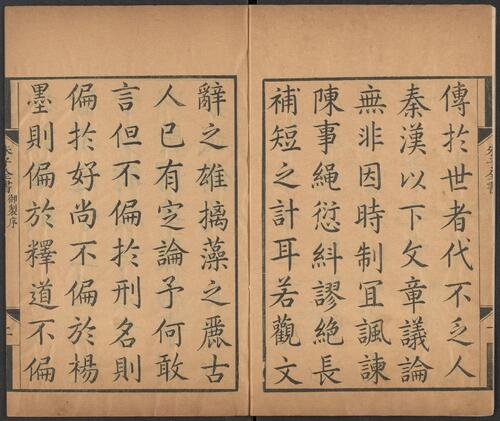 傳於世者代不乏人
秦漢以下文章議論
無非因時制宜諷諫
陳事繩愆糾謬絕長
補短之計耳若觀文
辭之雄摛藻之麗古
人已有定論予何敢
言但不偏於刑名則
偏於好尚不偏於楊
墨則偏於釋道不偏
朱子全書 御製序